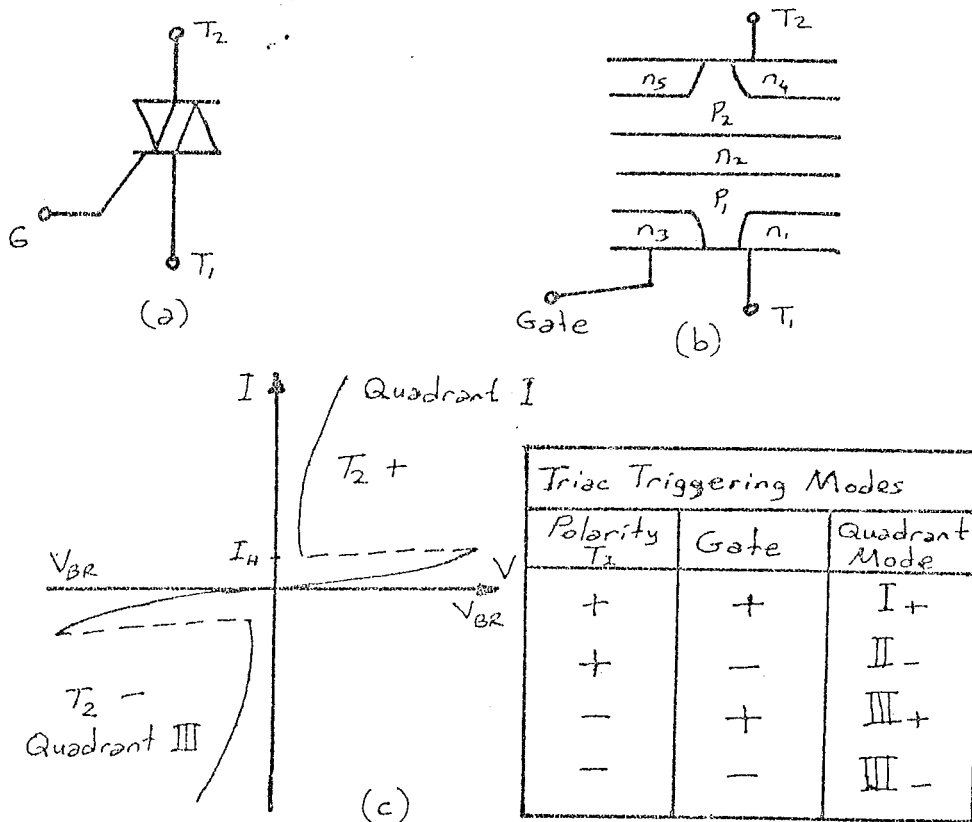 T2
G
T1
(a)
T2
n5 n4
P2
n2
P1
n3 n1
Gate
T1
(b)
I
Quadrant I
T2 +
IH
VBR
V
VBR
T2 -
Quadrant III
(c)
Triac Triggering Modes
Polarity T2 Gate Quadrant Mode
+ + I+
+ - II-
- + III+
- - III-